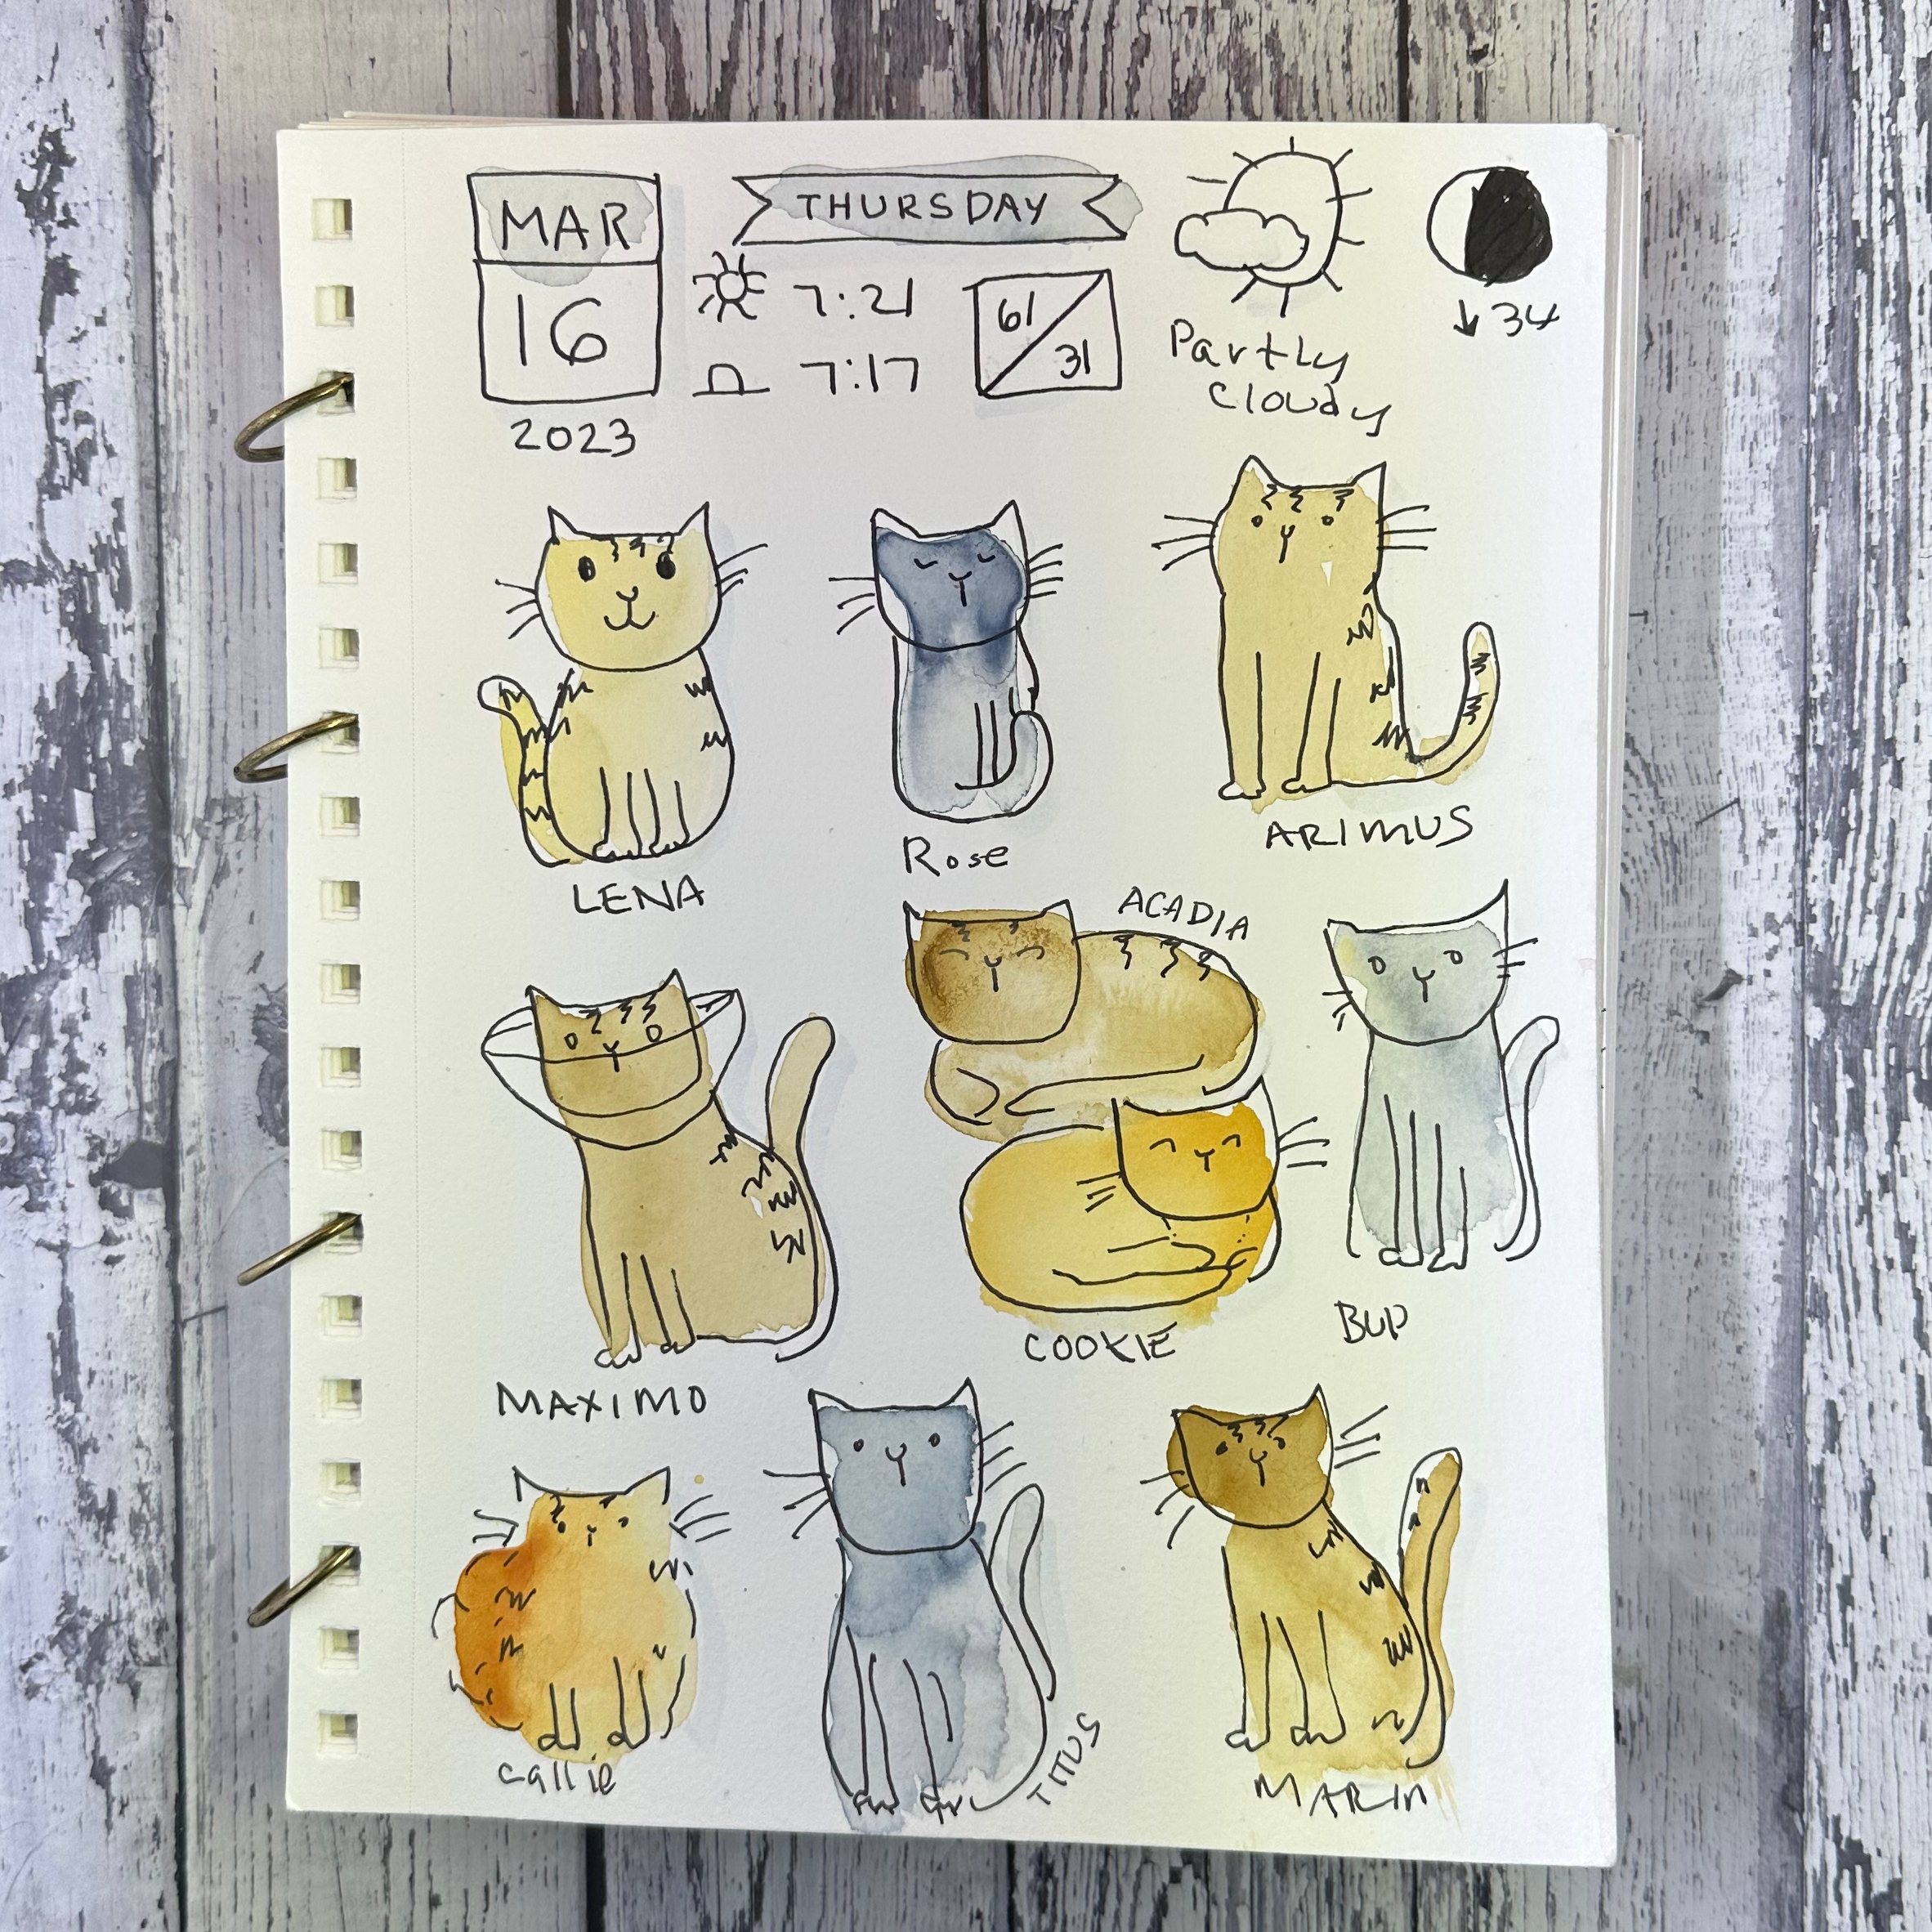 MAR
16
2023
THURSDAY
7:21
7:17
61/31
Partly
Cloudy
↓34
LENA
Rose
ARIMUS
MAXIMO
ACADIA
COOKIE
BUP
Callie
TITUS
MARIN